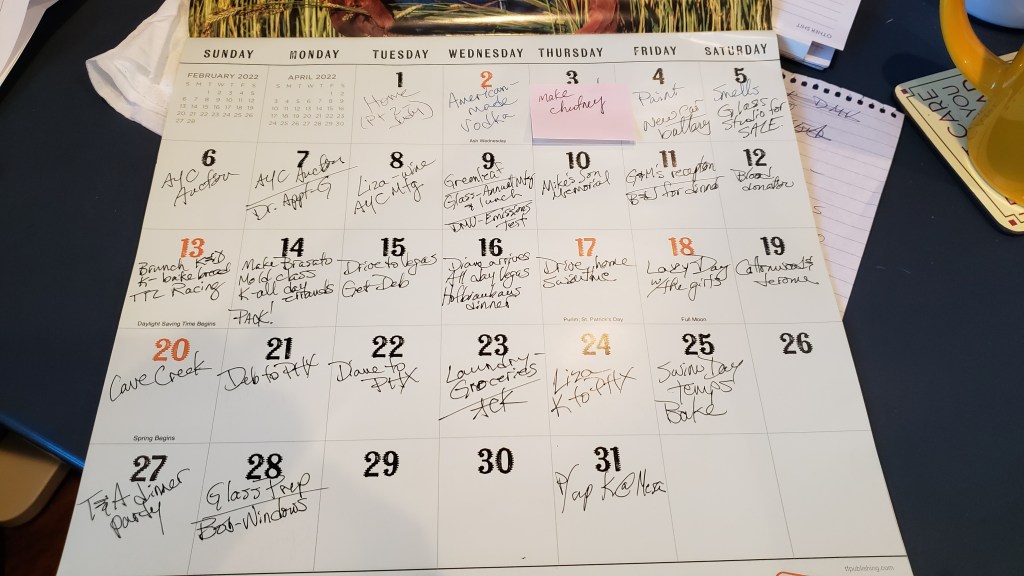 SUNDAY MONDAY TUESDAY WEDNESDAY THURSDAY FRIDAY SATURDAY
FEBRUARY 2022
APRIL 2022
1
Home
2
American-
made
Vodka
Ash Wednesday
3
Make
chutney
4
Paint
New car
battery
5
Smells
Glass
studio for
SALE.
6
AYC
Auction
7
AYC Auction
Dr. Appt-G
8
Liza-wine
AYC Mtg
9
Greenleaf
Glass-Annual Mtg
& lunch
DMV-Emissions
Test
10
Mike's Son
Memorial
11
G&M's reception
for dinner
12
Blood
donation
13
Brunch
K-bake bread
TTZ Racing
Daylight Saving Time Begins
14
Make Brasato
Mold class
K-all day
errands
PACK!
15
Drive to Vegas
Get Deb
16
Diane arrives
All day Vegas
Hofbrauhaus
dinner
17
Drive home
Purim; St. Patrick's Day
18
Lazy Day
w/the girls
Full Moon
19
Cottonwood &
Jerome
20
Cave Creek
Spring Begins
21
Deb to PHX
22
Diane to
PHX
23
Laundry-
Groceries
24
Liza
K to PHX
25
Swim Day
Temps
Bake
26
27
T&A dinner
party
28
Glass Prep
Bob-Windows
29
30
31
P/up K@Mesa
ttpublishing.com
OTHER SHIT
DMV
CARE
YOU